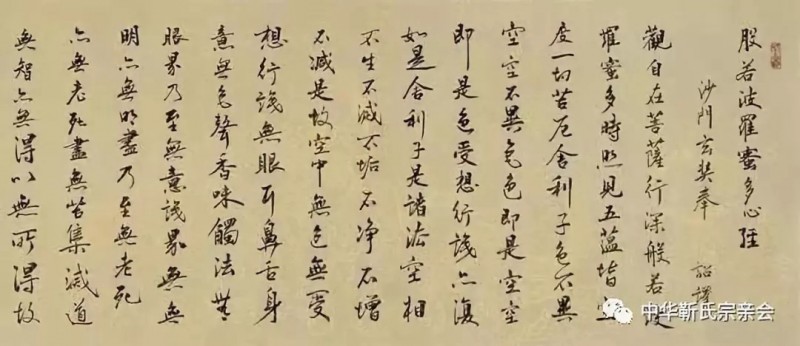 般若波羅蜜多心經
沙門玄奘奉 詔譯
觀自在菩薩行深般若波
羅蜜多時照見五蘊皆空
度一切苦厄舍利子色不異
空空不異色色即是空空
即是色受想行識亦復
如是舍利子是諸法空相
不生不滅不垢不净不增
不減是故空中無色無受
想行識無眼耳鼻舌身
意無色聲香味觸法無
眼界乃至無意識界無無
明亦無明盡乃至無老死
亦無老死盡無苦集滅道
無智亦無得以無所得故
中华靳氏宗亲会